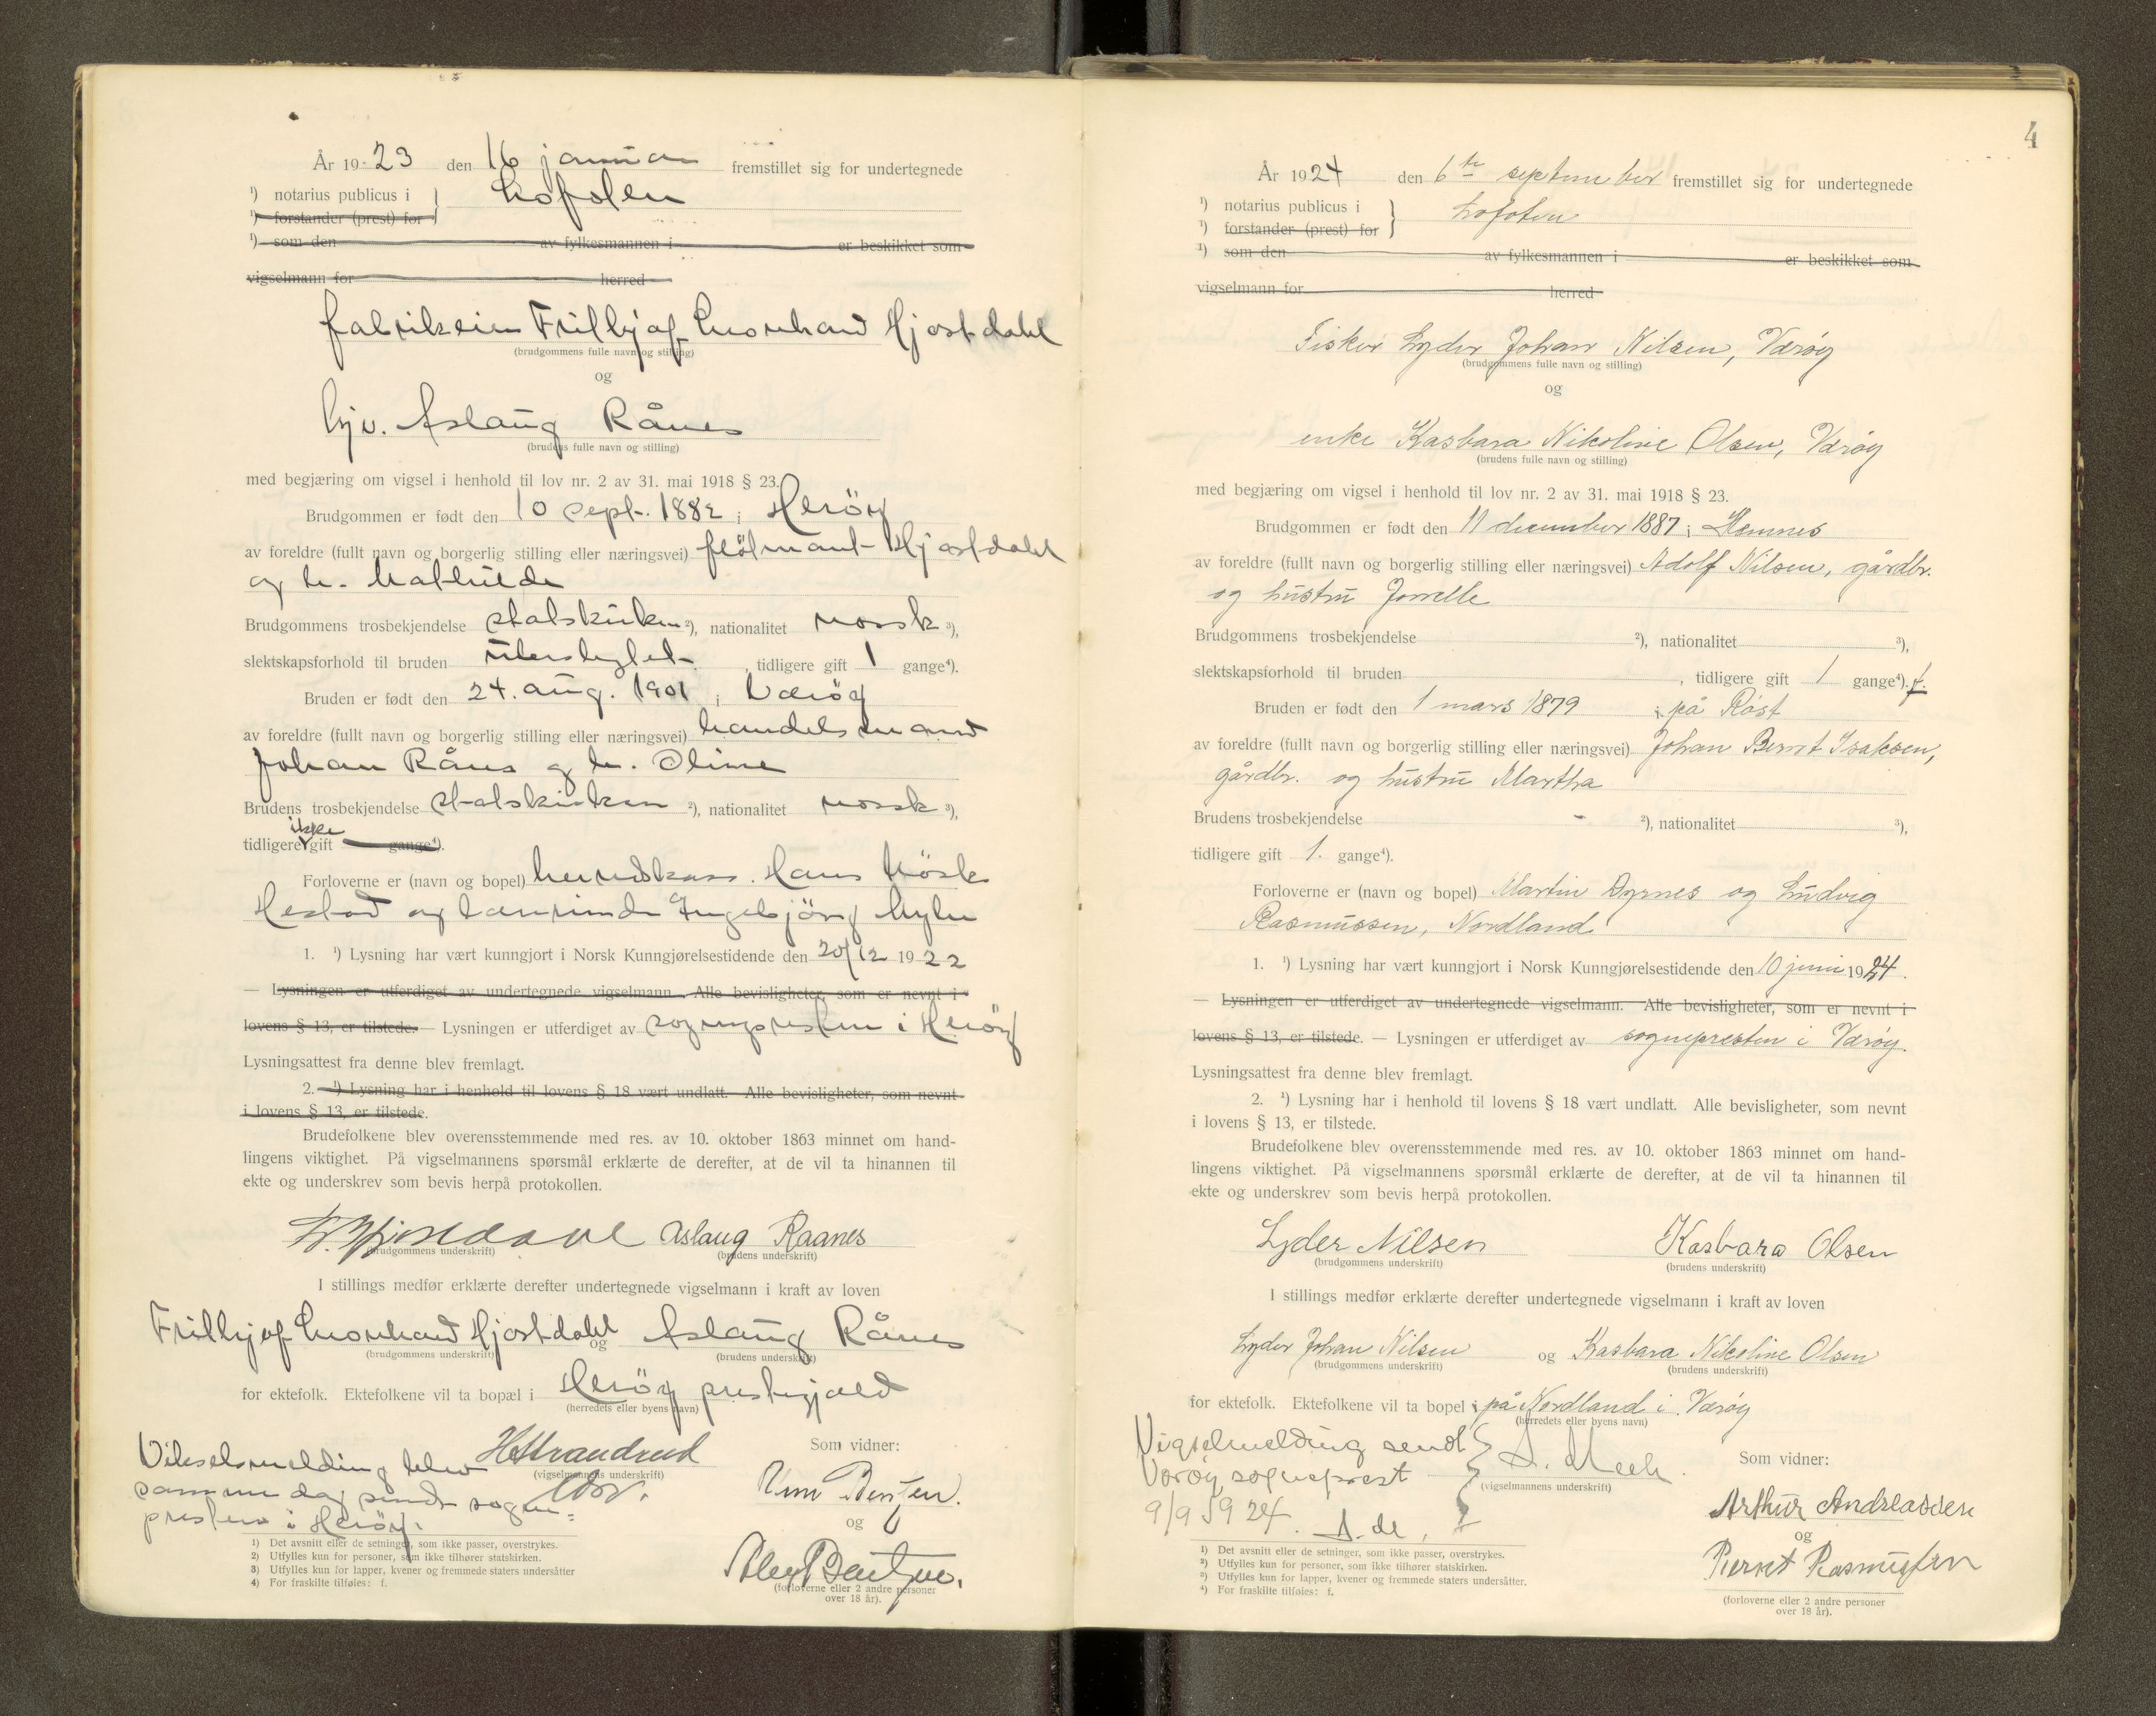 År 1923 den 16 januar fremstillet sig for undertegnede
¹) notarius publicus i } Lofoten
¹) forstander (prest) for
¹) som den av fylkesmannen i er beskikket som
vigselmann for herred
fabrikeier Fritjof Leonhard Hjortdahl
(brudgommens fulle navn og stilling)
og
Aslaug Rånes
(brudens fulle navn og stilling)
med begjæring om vigsel i henhold til lov nr. 2 av 31. mai 1918 § 23.
Brudgommen er født den 10 sept. 1882 i Heröy
av foreldre (fullt navn og borgerlig stilling eller næringsvei) Hjortdahl
og h. Mathilde
Brudgommens trosbekjendelse statskirken ²), nationalitet norsk ³),
slektskapsforhold til bruden ubeslegtet , tidligere gift 1 gange⁴).
Bruden er født den 24. aug. 1901 i Værøy
av foreldre (fullt navn og borgerlig stilling eller næringsvei) handelsmand
Johan Rånes og h. Oline
Brudens trosbekjendelse statskirken ²), nationalitet norsk ³),
tidligere ikke gift gange⁴).
Forloverne er (navn og bopel) Hans
og lærerinde Ingebjörg
1. ¹) Lysning har vært kunngjort i Norsk Kunngjørelsestidende den 20/12 1922
— Lysningen er utferdiget av undertegnede vigselmann. Alle bevisligheter, som er nevnt i
lovens § 13, er tilstede. — Lysningen er utferdiget av sogneprestem i Heröy
Lysningsattest fra denne blev fremlagt.
2. ¹) Lysning har i henhold til lovens § 18 vært undlatt. Alle bevisligheter, som nevnt
i lovens § 13, er tilstede.
Brudefolkene blev overensstemmende med res. av 10. oktober 1863 minnet om hand-
lingens viktighet. På vigselmannens spørsmål erklærte de derefter, at de vil ta hinannen til
ekte og underskrev som bevis herpå protokollen.
Aslaug Raanes
(brudgommens underskrift) (brudens underskrift)
I stillings medfør erklærte derefter undertegnede vigselmann i kraft av loven
Fritjof Leonhard Hjortdahl og Aslaug Rånes
(brudgommens underskrift) (brudens underskrift)
for ektefolk. Ektefolkene vil ta bopæl i Heröy prestegjeld
(herredets eller byens navn)
H Strandrud
(vigselmannens underskrift)
Vikselsmelding blev
samme dag sendt sogne=
presten i Heröy.
Som vidner:
og
(forloverne eller 2 andre personer
over 18 år).
1) Det avsnitt eller de setninger, som ikke passer, overstrykes.
2) Utfylles kun for personer, som ikke tilhører statskirken.
3) Utfylles kun for lapper, kvener og fremmede staters undersåtter
4) For fraskilte tilføies: f.
4
År 1924 den 6te september fremstillet sig for undertegnede
¹) notarius publicus i } Lofoten
¹) forstander (prest) for
¹) som den av fylkesmannen i er beskikket som
vigselmann for herred
Fisker Lyder Johan Nilsen, Værøy
(brudgommens fulle navn og stilling)
og
enke Kasbara Nikoline Olsen, Værøy
(brudens fulle navn og stilling)
med begjæring om vigsel i henhold til lov nr. 2 av 31. mai 1918 § 23.
Brudgommen er født den 11 december 1887 i Hemnes
av foreldre (fullt navn og borgerlig stilling eller næringsvei) Adolf Nilsen, gårdbr.
og hustru
Brudgommens trosbekjendelse ²), nationalitet ³),
slektskapsforhold til bruden , tidligere gift 1 gange⁴). f.
Bruden er født den 1 mars 1879 i på Røst
av foreldre (fullt navn og borgerlig stilling eller næringsvei) Johan Bernt Isaksen,
gårdbr. og hustru Martha
Brudens trosbekjendelse - ²), nationalitet ³),
tidligere gift 1. gange⁴).
Forloverne er (navn og bopel) Martin Dyrnes og Ludvig
Rasmussen, Nordland
1. ¹) Lysning har vært kunngjort i Norsk Kunngjørelsestidende den 10 juni 1924.
— Lysningen er utferdiget av undertegnede vigselmann. Alle bevisligheter, som er nevnt i
lovens § 13, er tilstede. — Lysningen er utferdiget av sognepresten i Værøy.
Lysningsattest fra denne blev fremlagt.
2. ¹) Lysning har i henhold til lovens § 18 vært undlatt. Alle bevisligheter, som nevnt
i lovens § 13, er tilstede.
Brudefolkene blev overensstemmende med res. av 10. oktober 1863 minnet om hand-
lingens viktighet. På vigselmannens spørsmål erklærte de derefter, at de vil ta hinannen til
ekte og underskrev som bevis herpå protokollen.
Lyder Nilsen Kasbara Olsen
(brudgommens underskrift) (brudens underskrift)
I stillings medfør erklærte derefter undertegnede vigselmann i kraft av loven
Lyder Johan Nilsen og Kasbara Nikoline Olsen
(brudgommens underskrift) (brudens underskrift)
for ektefolk. Ektefolkene vil ta bopel i på Nordland i Værøy
(herredets eller byens navn)
Vigselmelding sendt
Værøy sogneprest
9/9 1924.
(vigselmannens underskrift)
Som vidner:
Arthur Andreassen
og
Bernt Rasmussen
(forloverne eller 2 andre personer
over 18 år).
¹) Det avsnitt eller de setninger, som ikke passer, overstrykes.
²) Utfylles kun for personer, som ikke tilhører statskirken.
³) Utfylles kun for lapper, kvener og fremmede staters undersåtter.
⁴) For fraskilte tilføies: f.